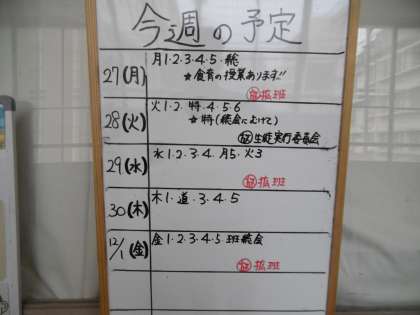 今週の予定
27(月) 月1・2・3・4・5・総
★食育の授業あります!!
拡班
28(火) 火1・2・特・4・5・6
★特(総会にむけて)
生徒実行委員会
29(水) 水1・2・3・4・月5・火3
拡班
30(木) 木1・道・3・4・5
12/1(金) 金1・2・3・4・5 班総会
拡班